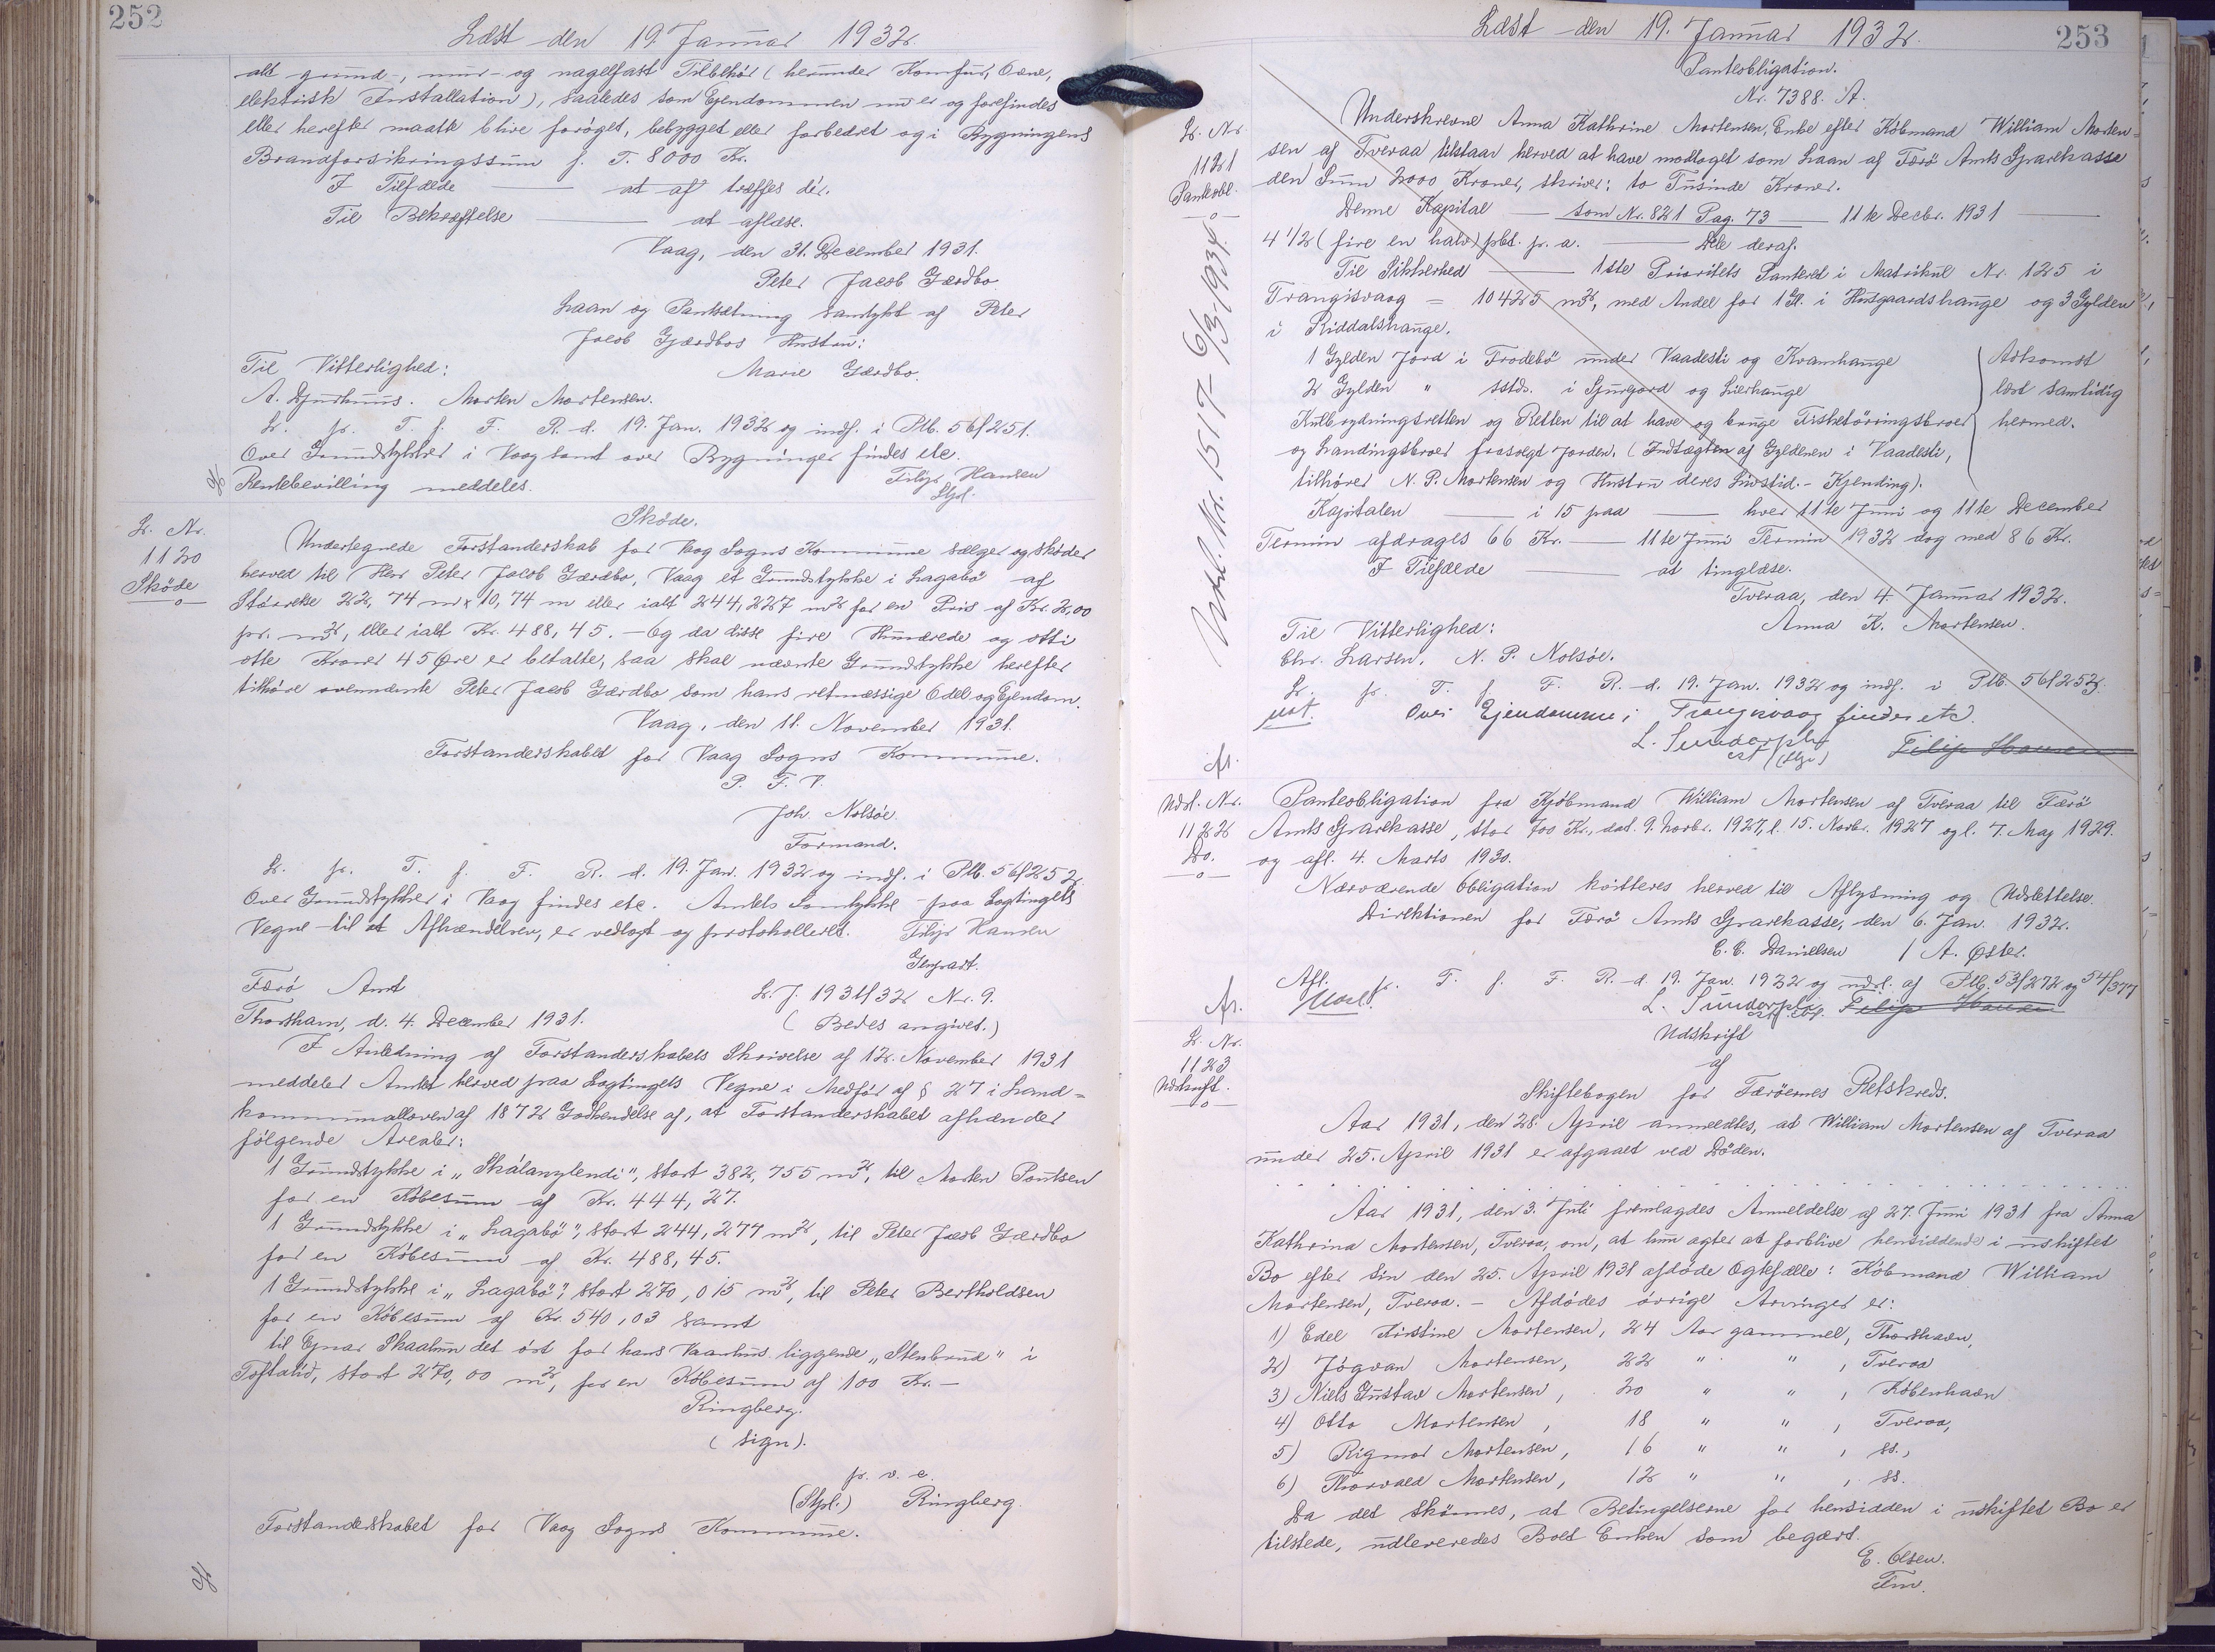 252
Læst den 19. Januar 1932.
alt grund-, mur- og nagelfast Tilbehör (herunder Komfur, Ovne,
elektrisk Installation), saaledes som Ejendommen nu er og forefindes
eller herefter maatte blive forøget, bebygget eller forbedret og i Bygningens
Brandforsikringssum p. T. 8000 Kr.
I Tilfælde — at af træffes dér.
Til Bekræftelse — at aflæse.
Vaag, den 31. December 1931.
Peter Jacob Gærdbo.
Laan og Pantsætning samtykt af Peter
Jacob Gjærdbos Hustru:
Til Vitterlighed: Marie Gærdbo.
A. Djurhuus. Morten Mortensen.
L. pr. T. f. F. R. d. 19. Jan. 1932 og indf. i Ptb. 56/251.
Over Grundstykker i Vaag samt over Bygninger findes etc.
Rentebevilling meddeles. Filip Hansen
Stpl.
L. Nr.
1120
Sköde
Sköde.
Undertegnede Forstanderskab for Vaag Sogns Kommune sælger og sköder
herved til Herr Peter Jacob Gærdbo, Vaag et Grundstykke i Lagabö af
Störrelse 22,74 m x 10,74 m eller ialt 244,227 m² for en Pris af Kr. 2,00
pr. m², eller ialt Kr. 488,45. — Og da disse fire Hundrede og otti
otte Kroner 45 Øre er betalte, saa skal nævnte Grundstykke herefter
tilhöre ovennævnte Peter Jacob Gærdbo som hans retmæssige Odel og Ejendom.
Vaag, den 11. November 1931.
Forstanderskabet for Vaag Sogns Kommune.
P. F. V.
Joh. Nolsöe.
Formand.
L. pr. T. f. F. R. d. 19. Jan. 1932 og indf. i Ptb. 56/252.
Over Grundstykker i Vaag findes etc. Amtets Samtykke - paa Lagtingets
Vegne - til at Afhændelsen, er vedlagt og protokolleret. Filip Hansen
Genpart.
Færö Amt L. J. 1931/32 Nr. 9.
Thorshavn, d. 4. December 1931. (Bedes angivet.)
I Anledning af Forstanderskabets Skrivelse af 12. November 1931
meddeler Amtet herved paa Lagtingets Vegne i Medför af § 27 i Land=
kommunalloven af 1872 Godkendelse af, at Forstanderskabet afhænder
fölgende Arealer:
1 Grundstykke i „Skálanylendi", stort 382,755 m², til Morten Poulsen
for en Köbesum af Kr. 444,27.
1 Grundstykke i „Lagabö", stort 244,277 m², til Peter Jacob Gærdbo
for en Köbesum af Kr. 488,45.
1 Grundstykke i „Lagabö", stort 270,015 m², til Peter Bertholdsen
for en Köbesum af Kr. 540,03 samt
til Ejnar Skaalum det öst for hans Vaanhus liggende „Stenbrud" i
Toftalid, stort 270,00 m², for en Köbesum af 100 Kr. —
Ringberg.
(sign).
p. v. e.
(Stpl.) Ringberg.
Forstanderskabet for Vaag Sogns Kommune.
253
Læst den 19. Januar 1932.
Panteobligation.
Nr. 7388. A.
L. Nr.
1121
Panteobl.
Udsl. Nr. 1517 - 6/3 1934.
Underskrevne Anna Kathrine Mortensen, Enke efter Köbmand William Morten=
sen af Tveraa tilstaar herved at have modtaget som Laan af Færö Amts Sparekasse
den Sum 2000 Kroner, skriver: to Tusinde Kroner.
Denne Kapital — som Nr. 821 Pag. 73 — 11te Decbr. 1931 —
4 1/2 (fire en halv) pCt. p. a. — Dele deraf.
Til Sikkerhed — 1ste Prioritets Panteret i Matrikul Nr. 125 i
Trangisvaag = 10425 m², med Andel for 1 Gl. i Husgaardshauge og 3 Gylden
i Riddalshauge.
1 Gylden Jord i Frodebö under Vaadesti og Kvamhauge
2 Gylden " sstds. i Sjurgord og Lierhauge
Kulbrydningsretten og Retten til at have og bruge Fisketörringsbroer
og Landingsbroer frasolgt Jorden. (Indtægten af Gyldenen i Vaadesti,
tilhörer N. P. Mortensen og Hustru deres Livstid. - Kjending).
Adkomst
læst samtidig
hermed.
Kapitalen — i 15 paa — hver 11te Juni og 11te December
Termin afdrages 66 Kr. — 11te Juni Termin 1932 dog med 86 Kr.
I Tilfælde — at tinglæse.
Tveraa, den 4. Januar 1932.
Til Vitterlighed: Anna K. Mortensen.
Chr. Larsen. N. P. Nolsöe.
L. pr. T. f. F. R. d. 19. Jan. 1932 og indf. i Ptb. 56/253.
Over Ejendomme i Trangisvaag findes etc.
L. Sunderplv
cst (stpl) Filip Hansen
Udsl. Nr.
1122
Do.
Panteobligation fra Kjöbmand William Mortensen af Tveraa til Færö
Amts Sparekasse, stor 700 Kr., dat. 9. Novbr. 1927, l. 15. Novbr. 1927 og l. 7. Maj 1929.
og afl. 4. Marts 1930.
Nærværende Obligation kvitteres herved til Aflysning og Udslettelse.
Direktionen for Færö Amts Sparekasse, den 6. Jan. 1932.
C. C. Danielsen / A. Øster.
Afl. pr. T. f. F. R. d. 19 Jan. 1932 og udsl. af Ptb. 53/272 og 54/377
L. Sunderplv Filip Hansen
L. Nr.
1123
Udskrift.
Udskrift
af
Skiftebogen for Færöernes Retskreds.
Aar 1931, den 28. April anmeldtes, at William Mortensen af Tveraa
under 25. April 1931 er afgaaet ved Döden.
Aar 1931, den 3. Juli fremlagdes Anmeldelse af 27. Juni 1931 fra Anna
Kathrina Mortensen, Tveraa, om, at hun agter at forblive hensiddende i uskiftet
Bo efter sin den 25. April 1931 afdöde Ægtefælle: Köbmand William
Mortensen, Tveraa. — Afdödes övrige Arvinger er:
1) Edel Kirstine Mortensen, 24 Aar gammel, Thorshavn,
2) Jógvan Mortensen, 22 " " , Tveraa
3) Niels Gustav Mortensen, 20 " " , Köbenhavn
4) Otto Mortensen, 18 " " , Tveraa,
5) Rigmor Mortensen, 16 " " , ss.,
6) Thorvald Mortensen, 12 " " , ss.
Da det skönnes, at Betingelserne for hensidden i uskiftet Bo er
tilstede, udleveredes Boet Enken som begært.
E. Olsen.
Fm.